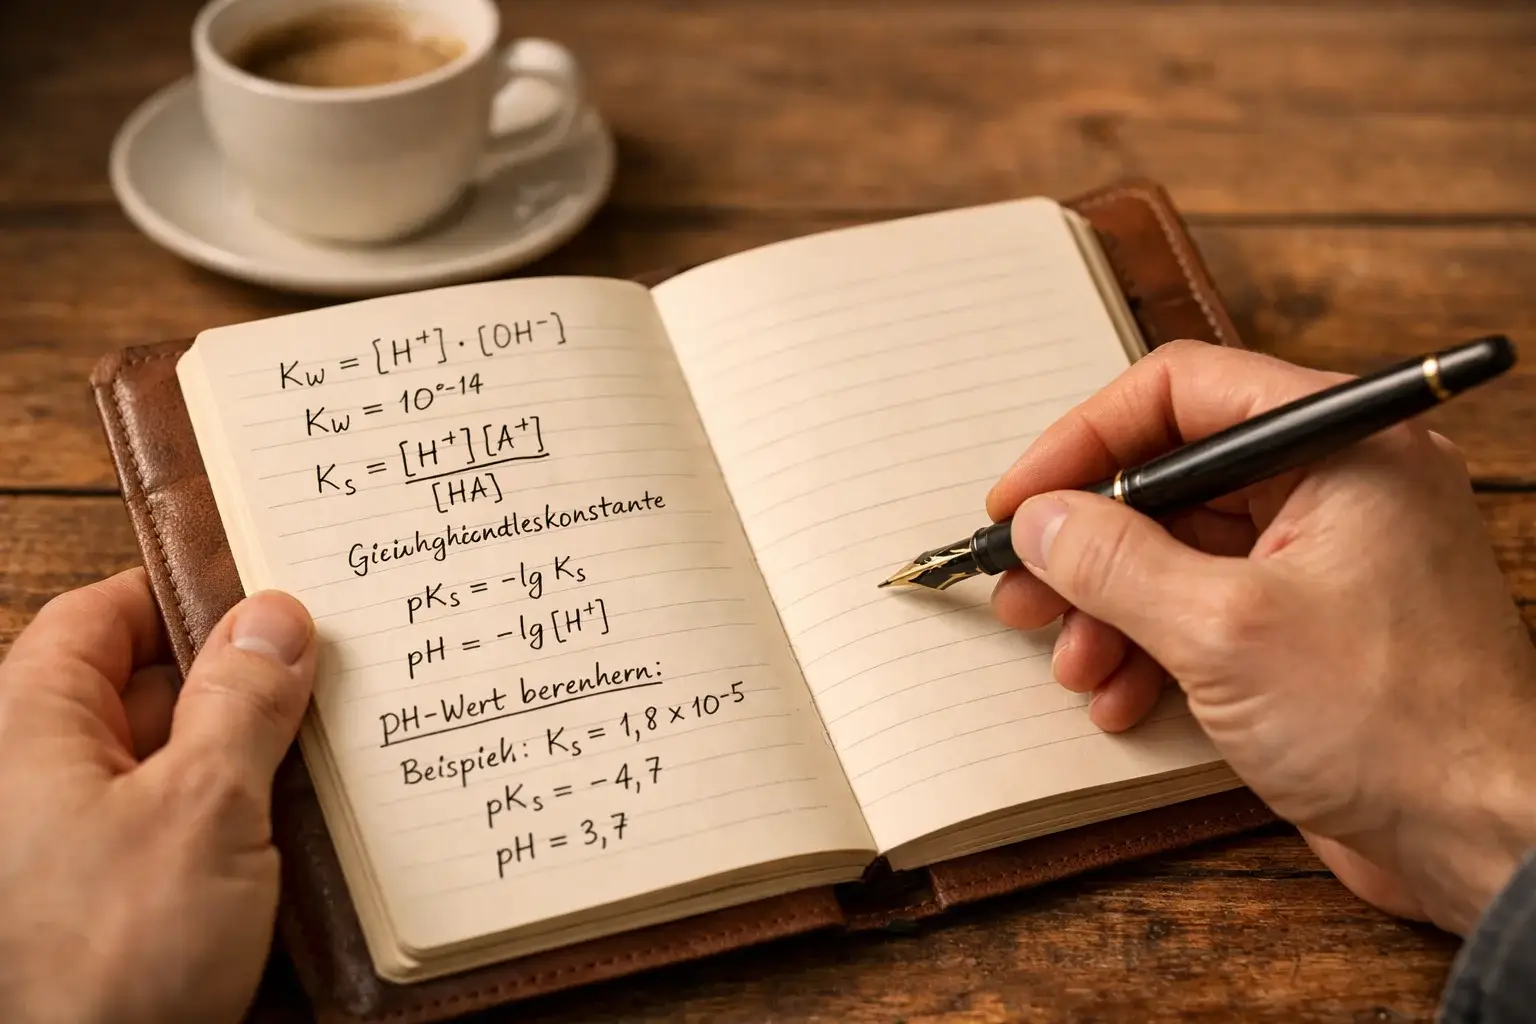 Kw = [H⁺] · [OH⁻]
Kw = 10°⁻¹⁴
Ks = [H⁺][A⁺]
[HA]
Gieiuhghicndleskonstante
pKs = -lg Ks
pH = -lg [H⁺]
pH-Wert berenhern:
Beispieh: Ks = 1,8 × 10⁻⁵
pKs = -4,7
pH = 3,7